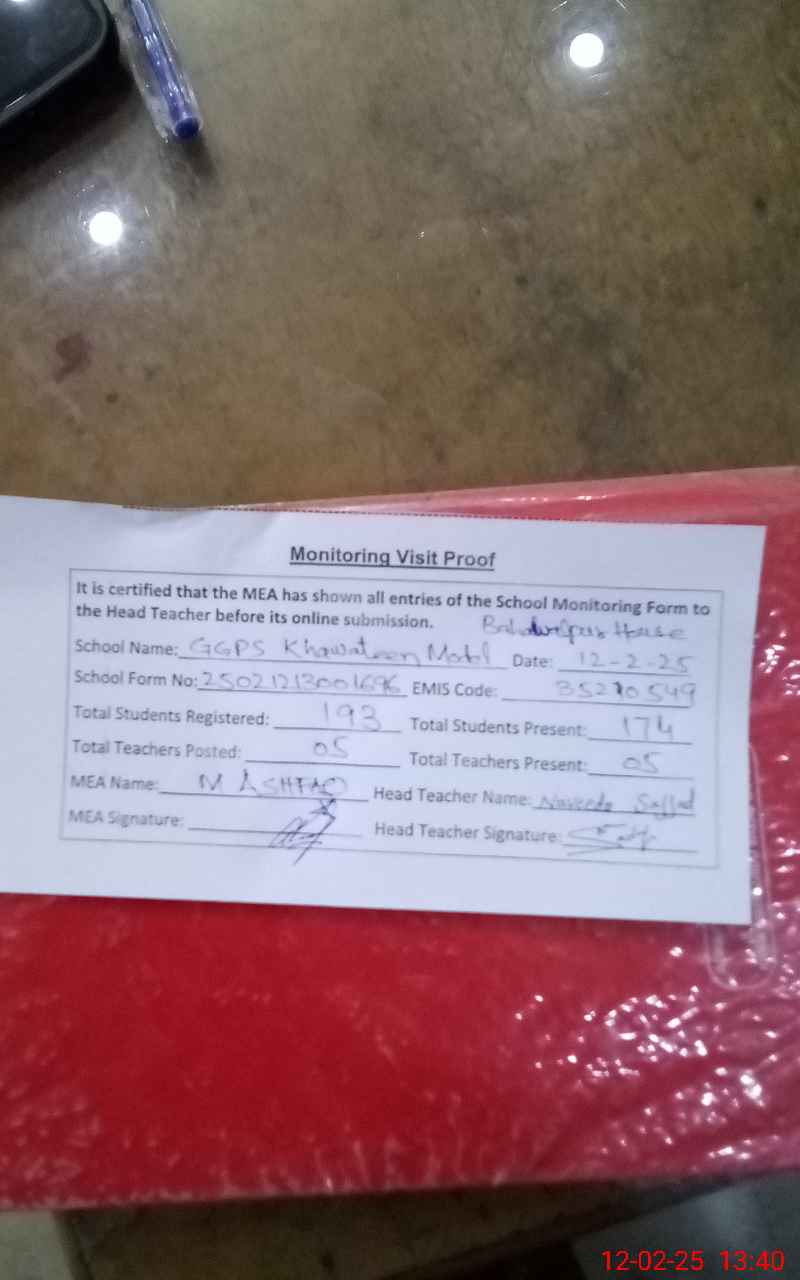 Monitoring Visit Proof
It is certified that the MEA has shown all entries of the School Monitoring Form to
the Head Teacher before its online submission. Bahawalpur House
School Name: GGPS Khawateen Model Date: 12-2-25
School Form No: 25021213001696 EMIS Code: 35210549
Total Students Registered: 193 Total Students Present: 174
Total Teachers Posted: 05 Total Teachers Present: 05
MEA Name: M ASHFAQ Head Teacher Name: Sajjad
MEA Signature: Head Teacher Signature:
12-02-25 13:40